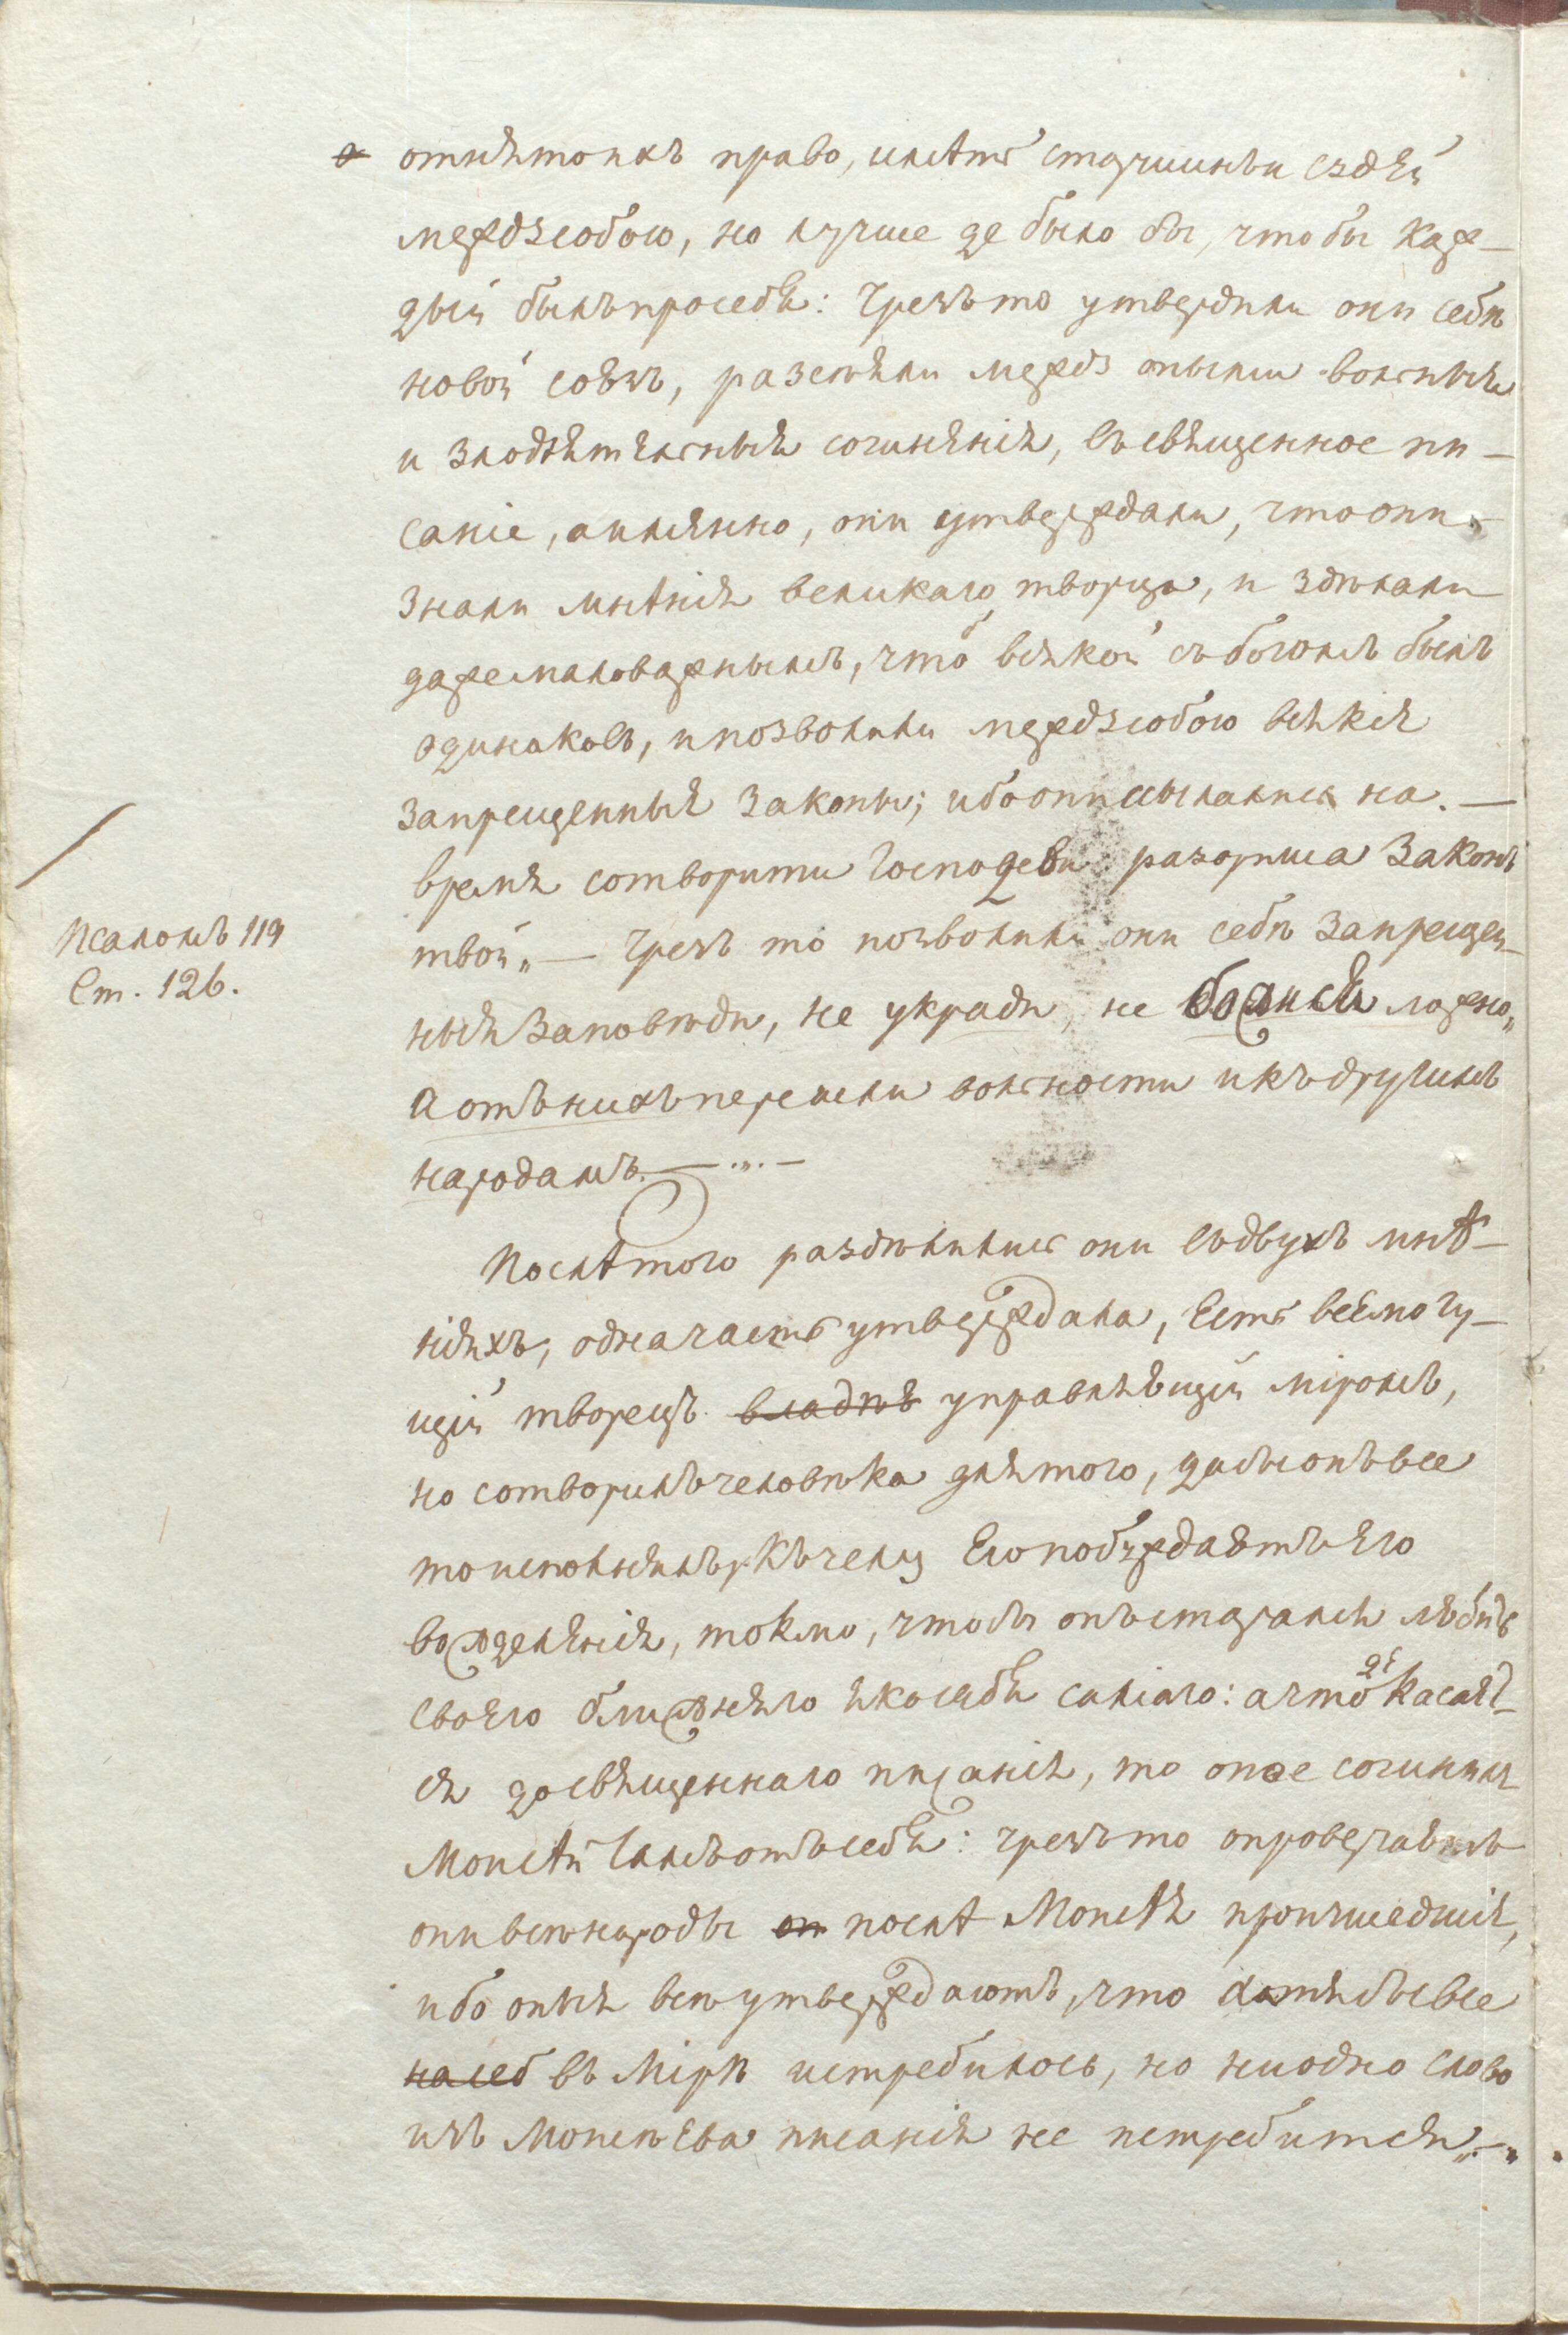 отнятоихъ право, имѣть старшинъи судѣй
междусобою, но лучше де было бы, чтобы каж-
дый былъпросебя: Чрезъто утвердили они себѣ
новой союзъ, разсѣяли между оными вольныя
и злодѣятельныя сочинѣнія, въсвященное пи-
саніе, аимянно, они утверждали, чтоони
знали мнѣнія великаго творца, и здѣлали
даже маловажнымъ, чтоб всякой събогомъ былъ
одинаковъ, ипозволили междусобою всякія
запрещенныя законы; ибоониссылались на. —
время сотворити Господеви разориша Законъ
твой„ — Чрезъ то позволили они себѣ запрещен-
ныя заповѣди, не укради, не божися ложно„
Аотънихъперешли вольности икъдругимъ
народамъ. —
Псаломъ 119
Ст. 126.
Послѣтого раздѣлились они въдвухъ мнѣ-
ніяхъ, одначасть утверждала, Есть всемогу-
щій творецъ владѣ управляющій міромъ,
но сотворилъчеловѣка длятого, дабыонъвсе
тоисполнялъ, Къчему Егопобуждаетъего
вожделѣнія, токмо, чтобы онъстарался любить
своего ближняго якосебя самаго: ачто ж касает-
ся досвященнаго писанія, то оное сочинилъ
Моисѣй Самъотъсебя: чрезъто опровергаютъ
онивсѣнароды он послѣ Моисѣя произшедшія,
ибо оныя всѣутверждаютъ, что хотябывсе
насеб въ Мірѣ истребилось, но ниодно слово
изъ Моисѣева писанія не истребится„—„